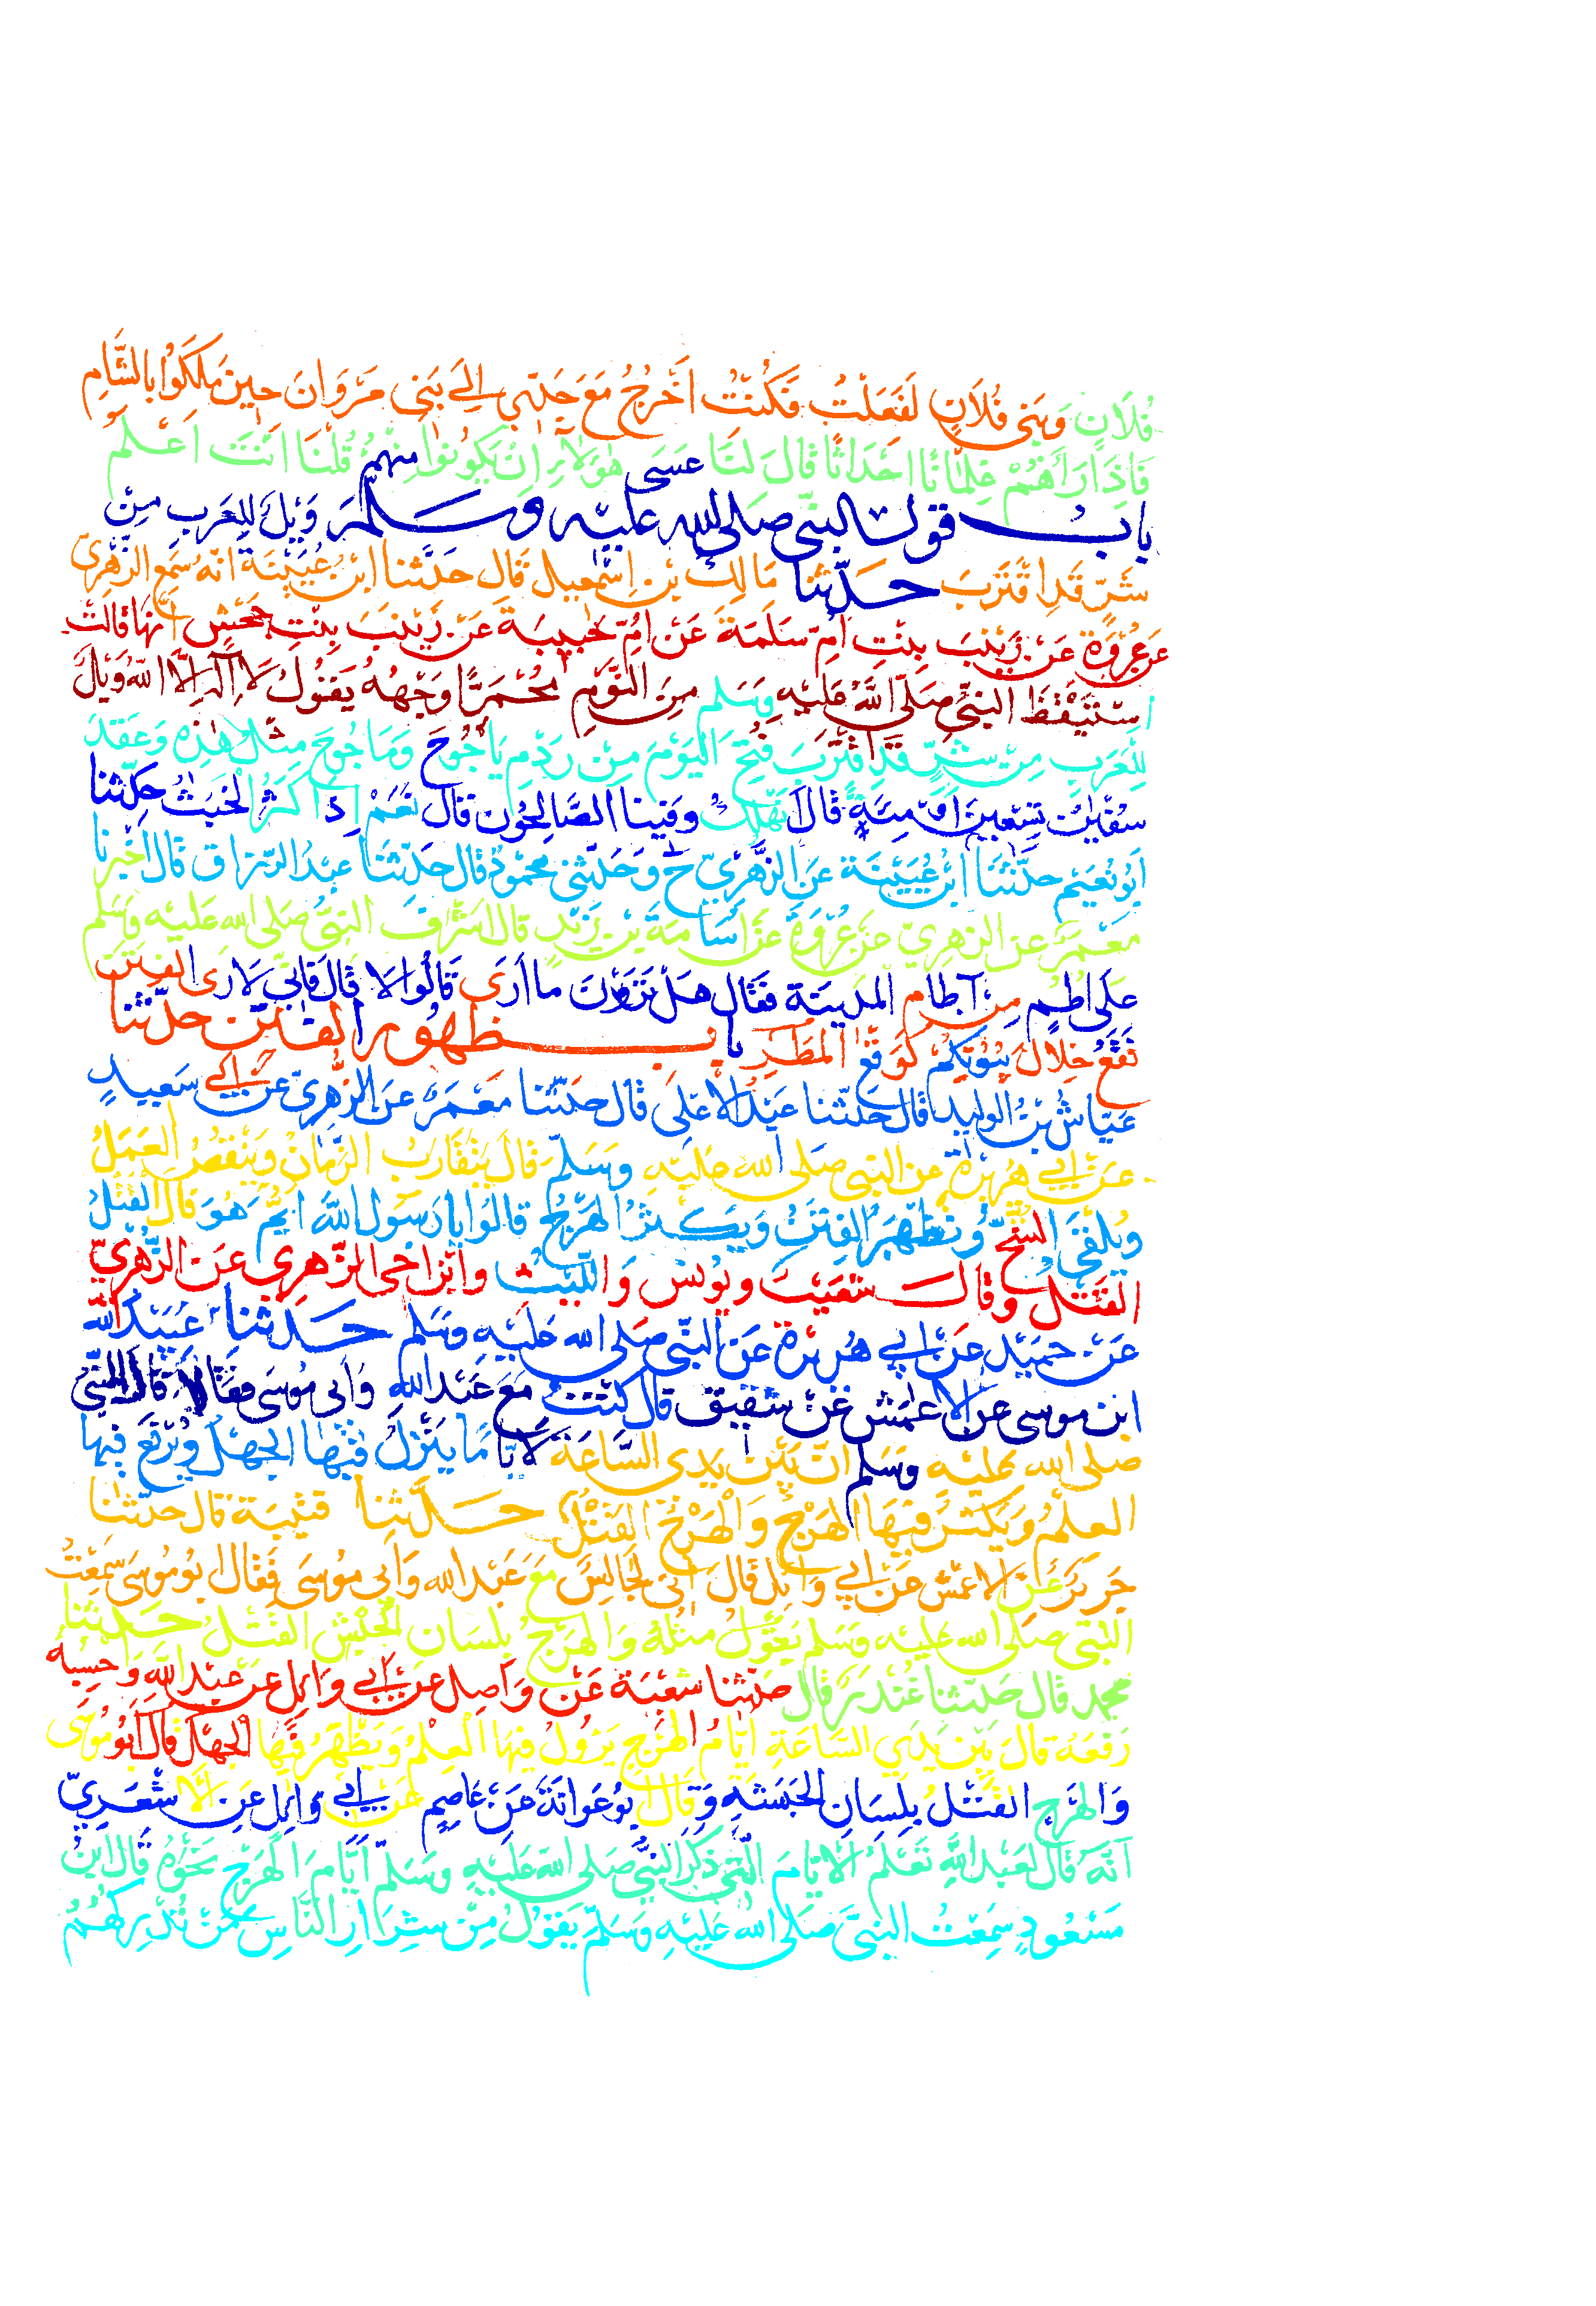 فُلَانٍ وَبَنِي فُلَانٍ لَفَعَلْتُ فَكُنْتُ أَخْرُجُ مَعَ جَدِّي إِلَى بَنِي مَرْوَانَ حِينَ مَلَكُوا بِالشَّامِ
فَإِذَا رَآهُمْ غِلْمَانًا أَحْدَاثًا قَالَ لَنَا عَسَى هَؤُلَاءِ أَنْ يَكُونُوا مِنْهُمْ قُلْنَا أَنْتَ أَعْلَمُ
باب قول النبي صلى الله عليه وسلم وَيْلٌ لِلْعَرَبِ مِنْ
شَرٍّ قَدِ اقْتَرَبَ حدّثنا مَالِكُ بْنُ إِسْمَعِيلَ قَالَ حَدَّثَنَا ابْنُ عُيَيْنَةَ أَنَّهُ سَمِعَ الزُّهْرِيَّ
عَنْ عُرْوَةَ عَنْ زَيْنَبَ بِنْتِ أُمِّ سَلَمَةَ عَنْ أُمِّ حَبِيبَةَ عَنْ زَيْنَبَ بِنْتِ جَحْشٍ أَنَّهَا قَالَتْ
اسْتَيْقَظَ النَّبِيُّ صَلَّى اللَّهُ عَلَيْهِ وَسَلَّمَ مِنَ النَّوْمِ مُحْمَرًّا وَجْهُهُ يَقُولُ لَا إِلَهَ إِلَّا اللَّهُ وَيْلٌ
لِلْعَرَبِ مِنْ شَرٍّ قَدِ اقْتَرَبَ فُتِحَ الْيَوْمَ مِنْ رَدْمِ يَاجُوجَ وَمَاجُوجَ مِثْلُ هَذِهِ وَعَقَدَ
سُفْيَنُ تِسْعِينَ أَوْ مِئَةً قَالَ أَنَهْلِكُ وَفِينَا الصَّالِحُونَ قَالَ نَعَمْ إِذَا كَثُرَ الْخَبَثُ حَدَّثَنَا
أَبُو نُعَيْمٍ حَدَّثَنَا ابْنُ عُيَيْنَةَ عَنِ الزُّهْرِيِّ ح وَحَدَّثَنِي مَحْمُودٌ قَالَ حَدَّثَنَا عَبْدُ الرَّزَّاقِ قَالَ أَخْبَرَنَا
مَعْمَرٌ عَنِ الزُّهْرِيِّ عَنْ عُرْوَةَ عَنْ أُسَامَةَ بْنِ زَيْدٍ قَالَ أَشْرَفَ النَّبِيُّ صَلَّى اللَّهُ عَلَيْهِ وَسَلَّمَ
عَلَى أُطُمٍ مِنْ آطَامِ الْمَدِينَةِ فَقَالَ هَلْ تَرَوْنَ مَا أَرَى قَالُوا لَا قَالَ فَإِنِّي لَأَرَى الْفِتَنَ
تَقَعُ خِلَالَ بُيُوتِكُمْ كَوَقْعِ الْمَطَرِ باب ظهور الفتن حدّثنا
عَيَّاشُ بْنُ الْوَلِيدِ قَالَ حَدَّثَنَا عَبْدُ الْأَعْلَى قَالَ حَدَّثَنَا مَعْمَرٌ عَنِ الزُّهْرِيِّ عَنْ سَعِيدٍ
عَنْ أَبِي هُرَيْرَةَ عَنِ النَّبِيِّ صَلَّى اللَّهُ عَلَيْهِ وَسَلَّمَ قَالَ يَتَقَارَبُ الزَّمَانُ وَيَنْقُصُ الْعَمَلُ
وَيُلْقَى الشُّحُّ وَتَظْهَرُ الْفِتَنُ وَيَكْثُرُ الْهَرْجُ قَالُوا يَا رَسُولَ اللَّهِ أَيُّمَ هُوَ قَالَ الْقَتْلُ
الْقَتْلُ وَقَالَ شُعَيْبٌ وَيُونُسُ وَاللَّيْثُ وَابْنُ أَخِي الزُّهْرِيِّ عَنِ الزُّهْرِيِّ
عَنْ حُمَيْدٍ عَنْ أَبِي هُرَيْرَةَ عَنِ النَّبِيِّ صَلَّى اللَّهُ عَلَيْهِ وَسَلَّمَ حدّثنا عُبَيْدُ اللَّهِ
ابن موسى عن الأعمش عَنْ شَقِيقٍ قَالَ كُنْتُ مَعَ عَبْدِ اللَّهِ وَأَبِي مُوسَى فَقَالَا قَالَ النَّبِيُّ
صلى الله عليه وسلم إِنَّ بَيْنَ يَدَيِ السَّاعَةِ لَأَيَّامًا يَنْزِلُ فِيهَا الْجَهْلُ وَيُرْفَعُ فِيهَا
الْعِلْمُ وَيَكْثُرُ فِيهَا الْهَرْجُ وَالْهَرْجُ الْقَتْلُ حدّثنا قُتَيْبَةُ قَالَ حَدَّثَنَا
جَرِيرٌ عَنِ الْأَعْمَشِ عَنْ أَبِي وَائِلٍ قَالَ إِنِّي لَجَالِسٌ مَعَ عَبْدِ اللَّهِ وَأَبِي مُوسَى فَقَالَ أَبُو مُوسَى سَمِعْتُ
النَّبِيَّ صَلَّى اللَّهُ عَلَيْهِ وَسَلَّمَ يَقُولُ مِثْلَهُ وَالْهَرْجُ بِلِسَانِ الْحَبَشِ الْقَتْلُ حدّثنا
محمد قَالَ حَدَّثَنَا غُنْدَرٌ قَالَ حَدَّثَنَا شُعْبَةُ عَنْ وَاصِلٍ عَنْ أَبِي وَائِلٍ عَنْ عَبْدِ اللَّهِ وَأَحْسِبُهُ
رَفَعَهُ قَالَ بَيْنَ يَدَيِ السَّاعَةِ أَيَّامُ الْهَرْجِ يَزُولُ فِيهَا الْعِلْمُ وَيَظْهَرُ فِيهَا الْجَهْلُ قَالَ أَبُو مُوسَى
وَالْهَرْجُ الْقَتْلُ بِلِسَانِ الْحَبَشَةِ وَقَالَ أَبُو عَوَانَةَ عَنْ عَاصِمٍ عَنْ أَبِي وَائِلٍ عَنِ الْأَشْعَرِيِّ
أَنَّهُ قَالَ لِعَبْدِ اللَّهِ تَعْلَمُ الْأَيَّامَ الَّتِي ذَكَرَ النَّبِيُّ صَلَّى اللَّهُ عَلَيْهِ وَسَلَّمَ أَيَّامَ الْهَرْجِ نَحْوَهُ قَالَ ابْنُ
مَسْعُودٍ سَمِعْتُ النَّبِيَّ صَلَّى اللَّهُ عَلَيْهِ وَسَلَّمَ يَقُولُ مِنْ شِرَارِ النَّاسِ مَنْ تُدْرِكُهُمُ